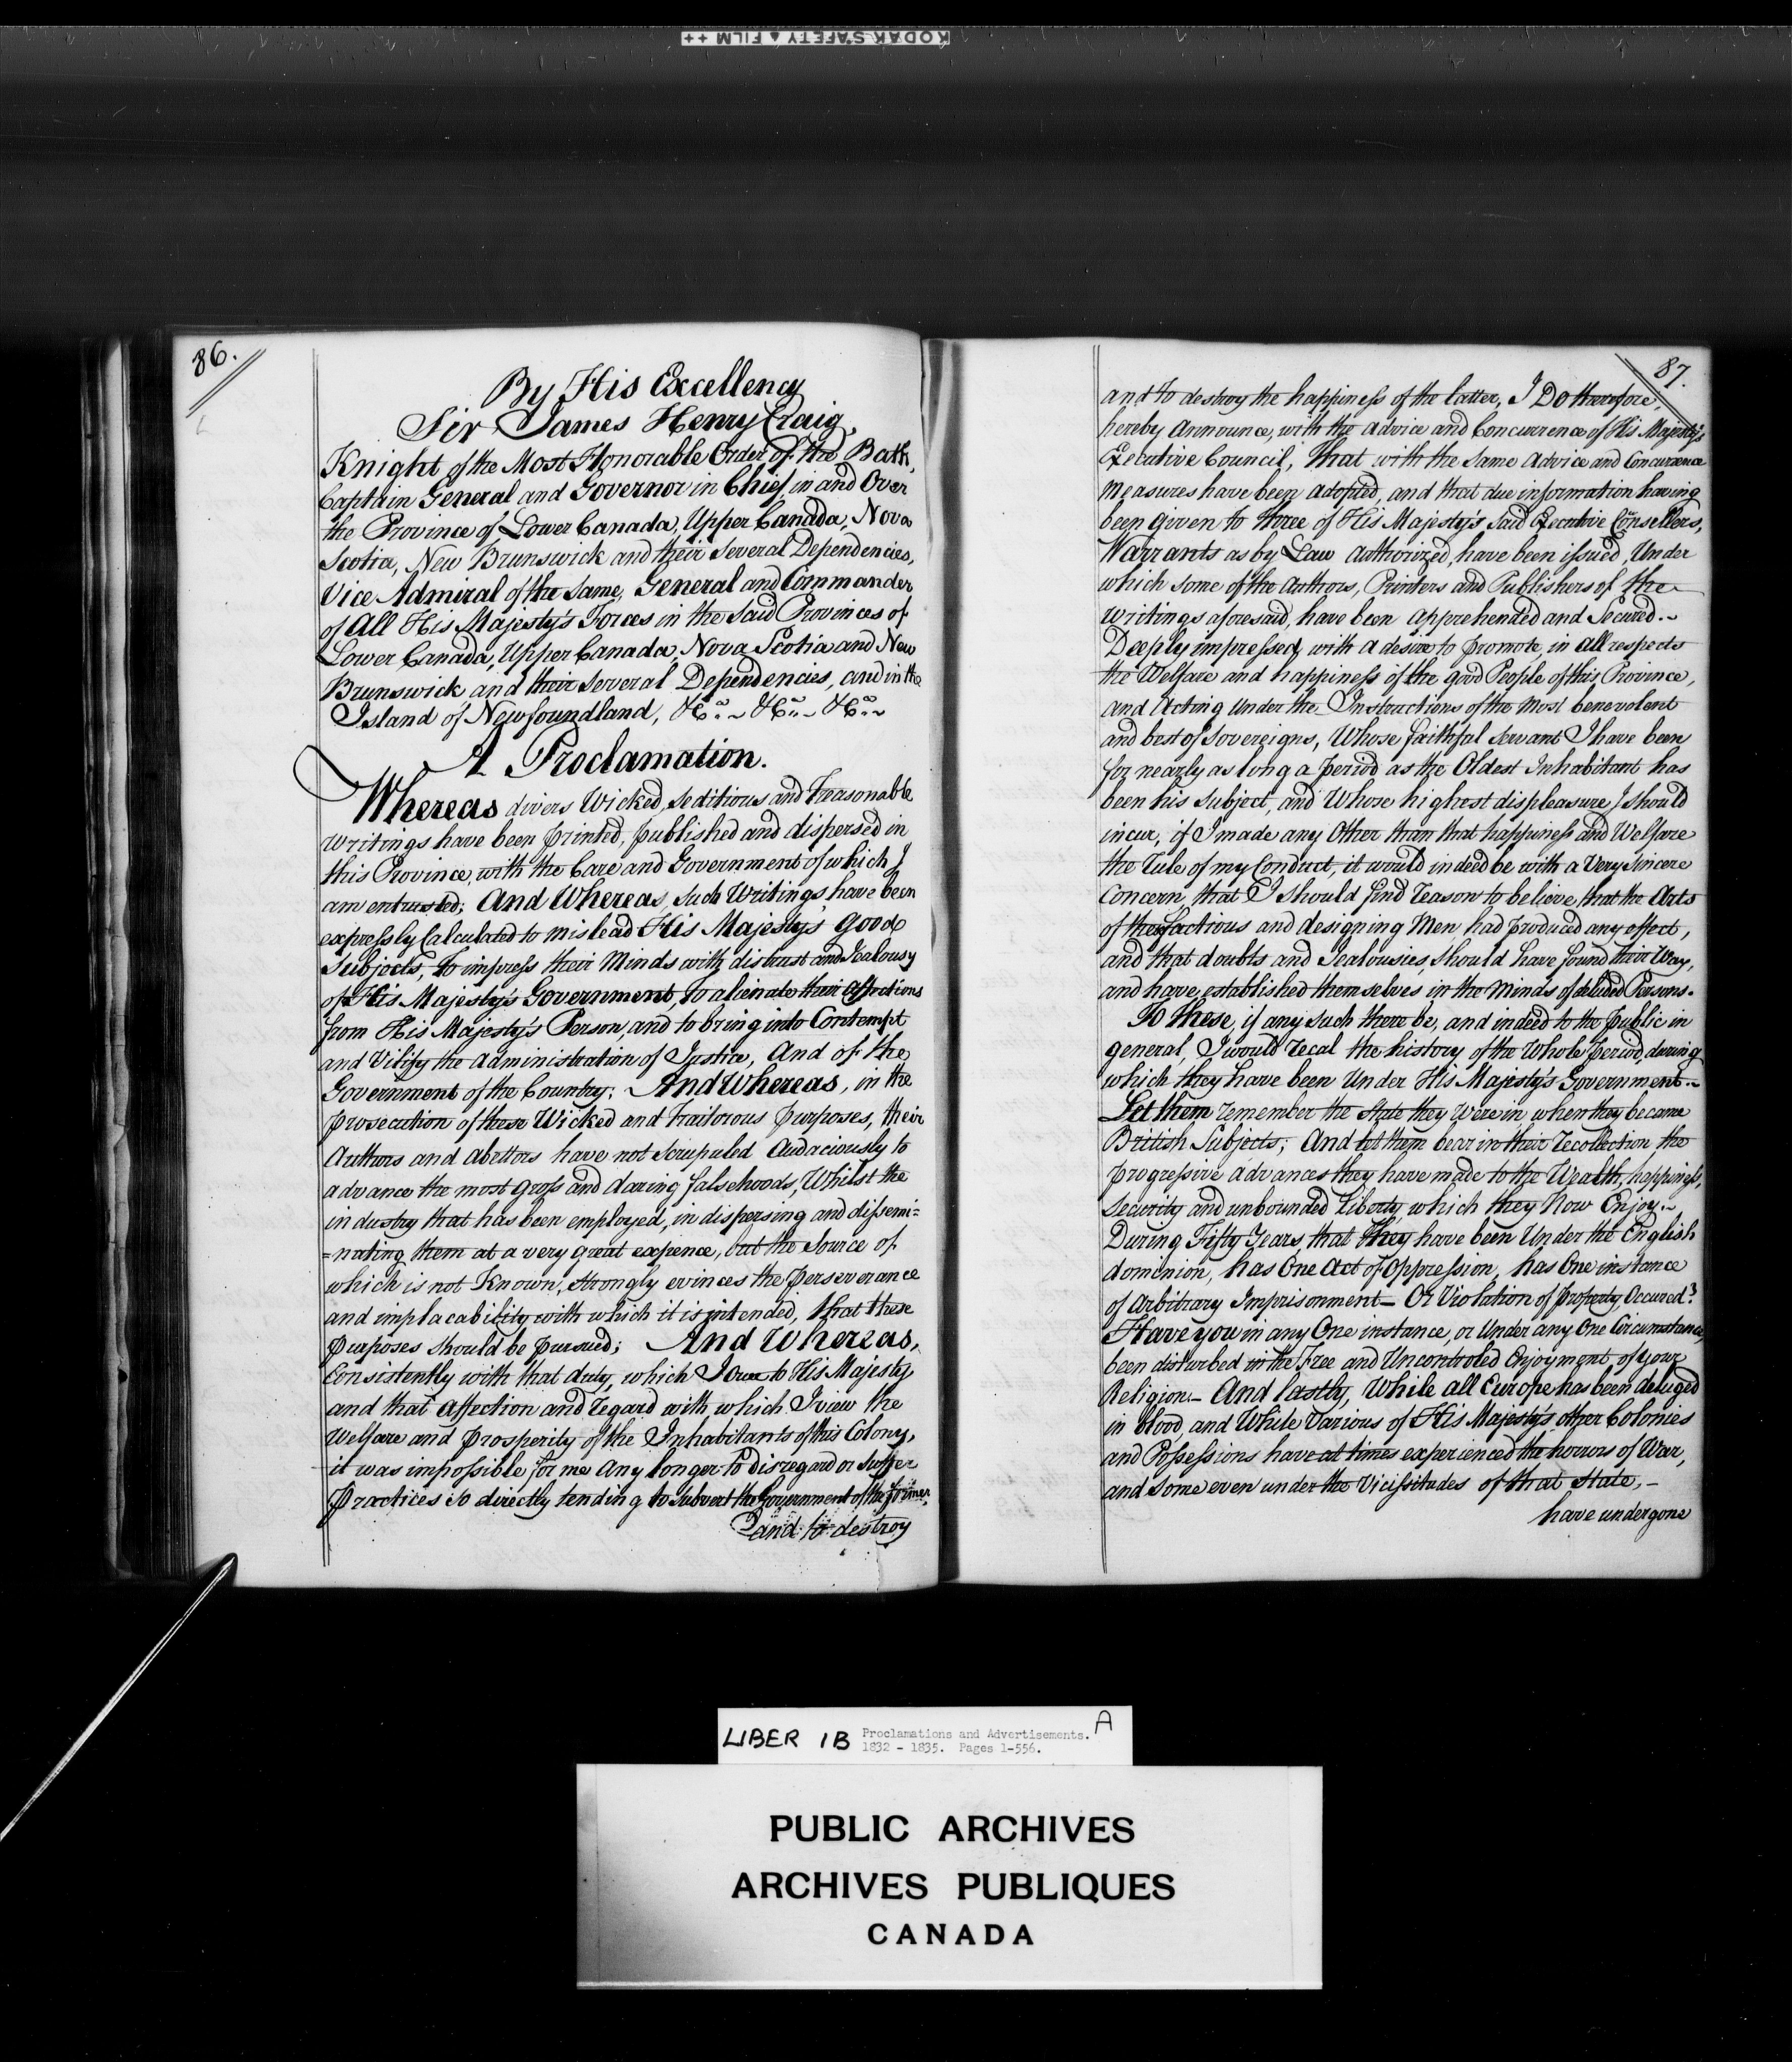 KODAK SAFETY ▲ FILM ++
86.
By His Excellency
Sir James Henry Craig,
Knight of the Most Honorable Order of the Bath,
Captain General and Governor in Chief in and Over
the Province of Lower Canada, Upper Canada, Nova
Scotia, New Brunswick and their several Dependencies,
Vice Admiral of the same, General and Commander
of All His Majesty's Forces in the said Provinces of
Lower Canada, Upper Canada, Nova Scotia and New
Brunswick and their several Dependencies, and in the
Island of Newfoundland, &Ca.~ &Ca.~ &Ca.~
A Proclamation.
Whereas divers Wicked, Seditious and Treasonable
writings have been printed, published and dispersed in
this Province, with the Care and Government of which I
am entrusted; And Whereas, such Writings have been
expressly Calculated to mislead His Majesty's good
Subjects, to impress their Minds with distrust and Jealousy
of His Majesty's Government, to alienate their Affections
from His Majesty's Person, and to bring into Contempt
and Vilify the administration of Justice, And of the
Government of the Country; And Whereas, in the
prosecution of these Wicked and traitorous purposes, their
Authors and abettors have not scrupuled Audaciously to
advance the most gross and daring falsehoods, Whilst the
industry that has been employed, in dispersing and dissemi=
=nating them at a very great expence, but the Source of
which is not Known, strongly evinces the perseverance
and implacability with which it is intended, that these
purposes should be pursued; And Whereas,
Consistently with that duty, which I owe to His Majesty
and that affection and regard with which I view the
Welfare and prosperity of the Inhabitants of this Colony,
it was impossible for me any longer to disregard or suffer
practices so directly tending to subvert the Government of the former,
and to destroy
87.
and to destroy the happiness of the latter, I Do therefore,
hereby Announce, with the advice and Concurrence of His Majesty's
Executive Council, That with the same advice and Concurrence
measures have been adopted, and that due information having
been given to three of His Majesty's said Executive Consellers,
Warrants as by Law authorized, have been issued, Under
which some of the Authors, Printers and Publishers of the
writings aforesaid, have been apprehended and Secured.~
Deeply impressed, with a desire to promote, in all respects
the Welfare and happiness of the good People of this Province,
and acting under the Instructions of the most benevolent
and best of Sovereigns, Whose faithful Servant I have been
for nearly as long a period, as the Oldest Inhabitant has
been his subject, and Whose highest displeasure I should
incur, if I made any Other than that happiness and Welfare
the rule of my Conduct, it would indeed be with a Very Sincere
Concern, that I should find reason to believe, that the Arts
of the factious and designing Men had produced any effect,
and that doubts and Jealousies, should have found their Way,
and have established themselves in the minds of deluded Persons.
To these, if any such there be, and indeed to the public in
general, I would recal the history of the Whole period, during
which they have been Under His Majesty's Government.~
Let them remember the state they Were in when they became
British Subjects; And let them bear in their recollection the
progressive advances they have made to the Wealth, happiness,
Security and unbounded Liberty, which they Now Enjoy.~
During Fifty Years, that They have been Under the English
dominion, has One Act of oppression, has One instance
of Arbitrary Imprisonment_ Or Violation of Property, Occured?
Have you in any One instance, or Under any One Circumstance,
been disturbed in the Free and Uncontroled enjoyment of your
Religion._ And lastly, While all Europe has been deluged
in blood, and While Various of His Majesty's other Colonies
and Possessions have at times experienced the horrors of War,
and some even under the Vicissitudes of that State, _
have undergone
LIBER 1B Proclamations and Advertisements. A
1832 - 1835. Pages 1-556.
PUBLIC ARCHIVES
ARCHIVES PUBLIQUES
CANADA